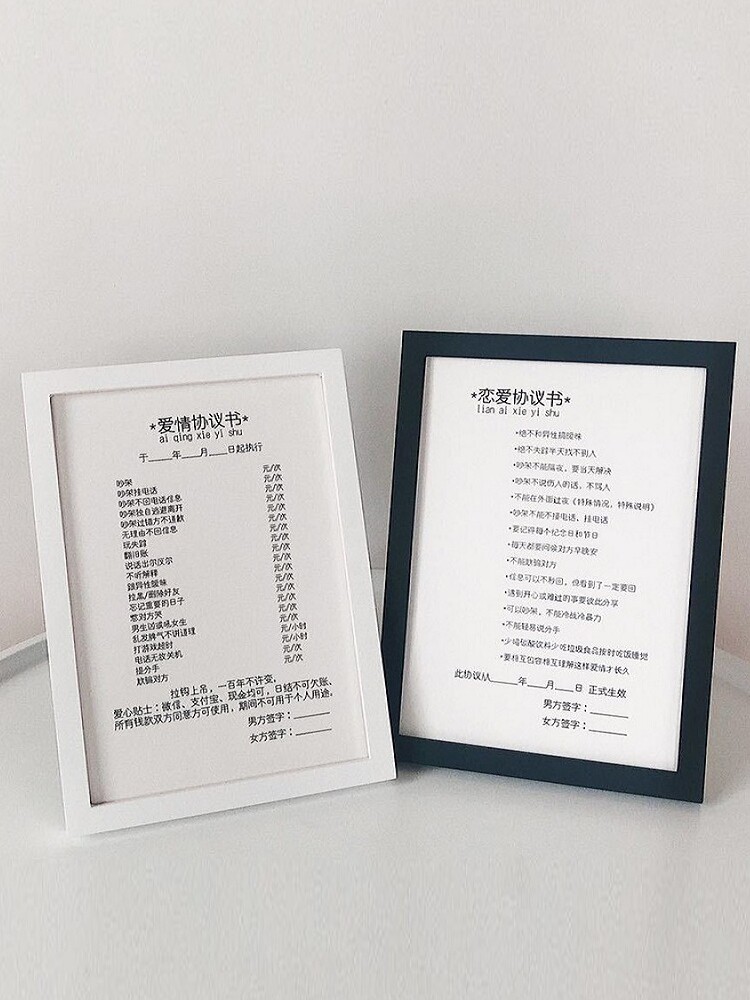 *爱情协议书*
ai qing xie yi shu
于____年____月____日起执行
吵架 元/次
吵架挂电话 元/次
吵架不回电话信息 元/次
吵架独自逃避离开 元/次
吵架过错方不道歉 元/次
无理由不回信息 元/次
玩失踪 元/次
翻旧账 元/次
说话出尔反尔 元/次
不听解释 元/次
跟异性暧昧 元/次
拉黑/删除好友 元/次
忘记重要的日子 元/次
惹对方哭 元/次
男生凶或吼女生 元/次
乱发脾气不讲道理 元/次
打游戏超时 元/小时
电话无故关机 元/小时
提分手 元/次
欺骗对方 元/次
拉钩上吊，一百年不许变，
爱心贴士：微信、支付宝、现金均可，日结不可欠账、
所有钱款双方同意方可使用，期间不可用于个人用途。
男方签字：________
女方签字：________
*恋爱协议书*
lian ai xie yi shu
•绝不和异性搞暧昧
•绝不失踪半天找不到人
•吵架不能隔夜，要当天解决
•吵架不说伤人的话，不骂人
•不能在外面过夜《特殊情况，特殊说明》
•吵架不能不接电话，挂电话
•要记得每个纪念日和节日
•每天都要问候对方早晚安
•不能欺骗对方
•信息可以不秒回，但看到了一定要回
•遇到开心或难过的事要彼此分享
•可以吵架，不能冷战冷暴力
•不能轻易说分手
•少喝碳酸饮料少吃垃圾食品按时吃饭睡觉
•要相互包容相互理解这样爱情才长久
此协议从____年____月____日 正式生效
男方签字：________
女方签字：________